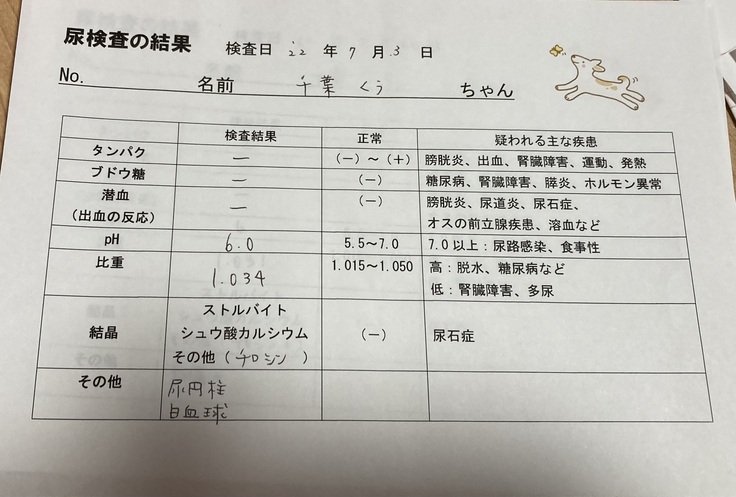 尿検査の結果 検査日 '22 年 7 月 3 日
No. 名前 千葉 くう ちゃん
検査結果 正常 疑われる主な疾患
タンパク － (－)～(＋) 膀胱炎、出血、腎臓障害、運動、発熱
ブドウ糖 － (－) 糖尿病、腎臓障害、膵炎、ホルモン異常
潜血 － (－) 膀胱炎、尿道炎、尿石症、
(出血の反応) オスの前立腺疾患、溶血など
pH 6.0 5.5～7.0 7.0以上：尿路感染、食事性
比重 1.034 1.015～1.050 高：脱水、糖尿病など
低：腎臓障害、多尿
ストルバイト
結晶 シュウ酸カルシウム (－) 尿石症
その他（チロシン ）
その他 尿円柱
白血球